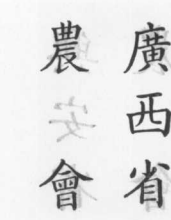 廣西省
農安會